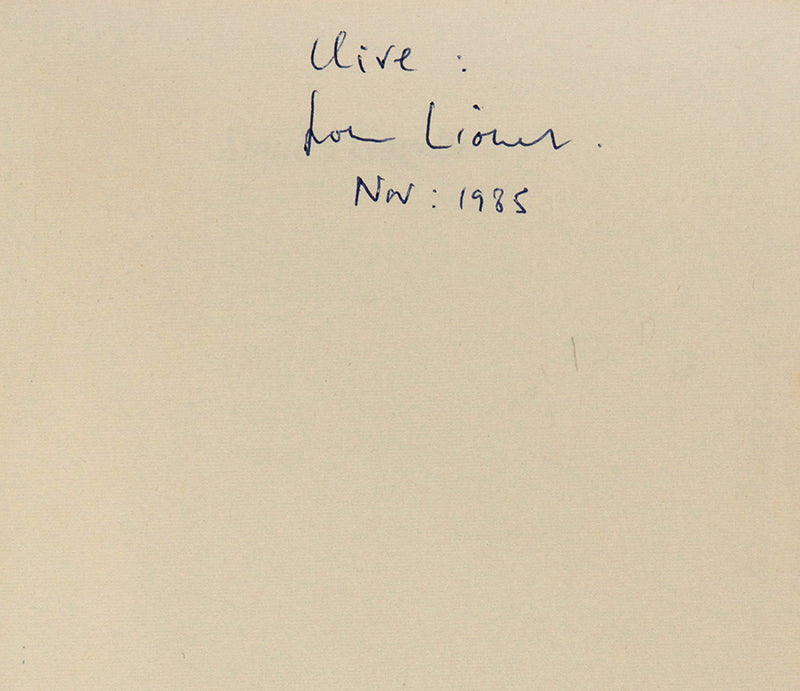 Clive :
from Lionel .
Nov : 1985